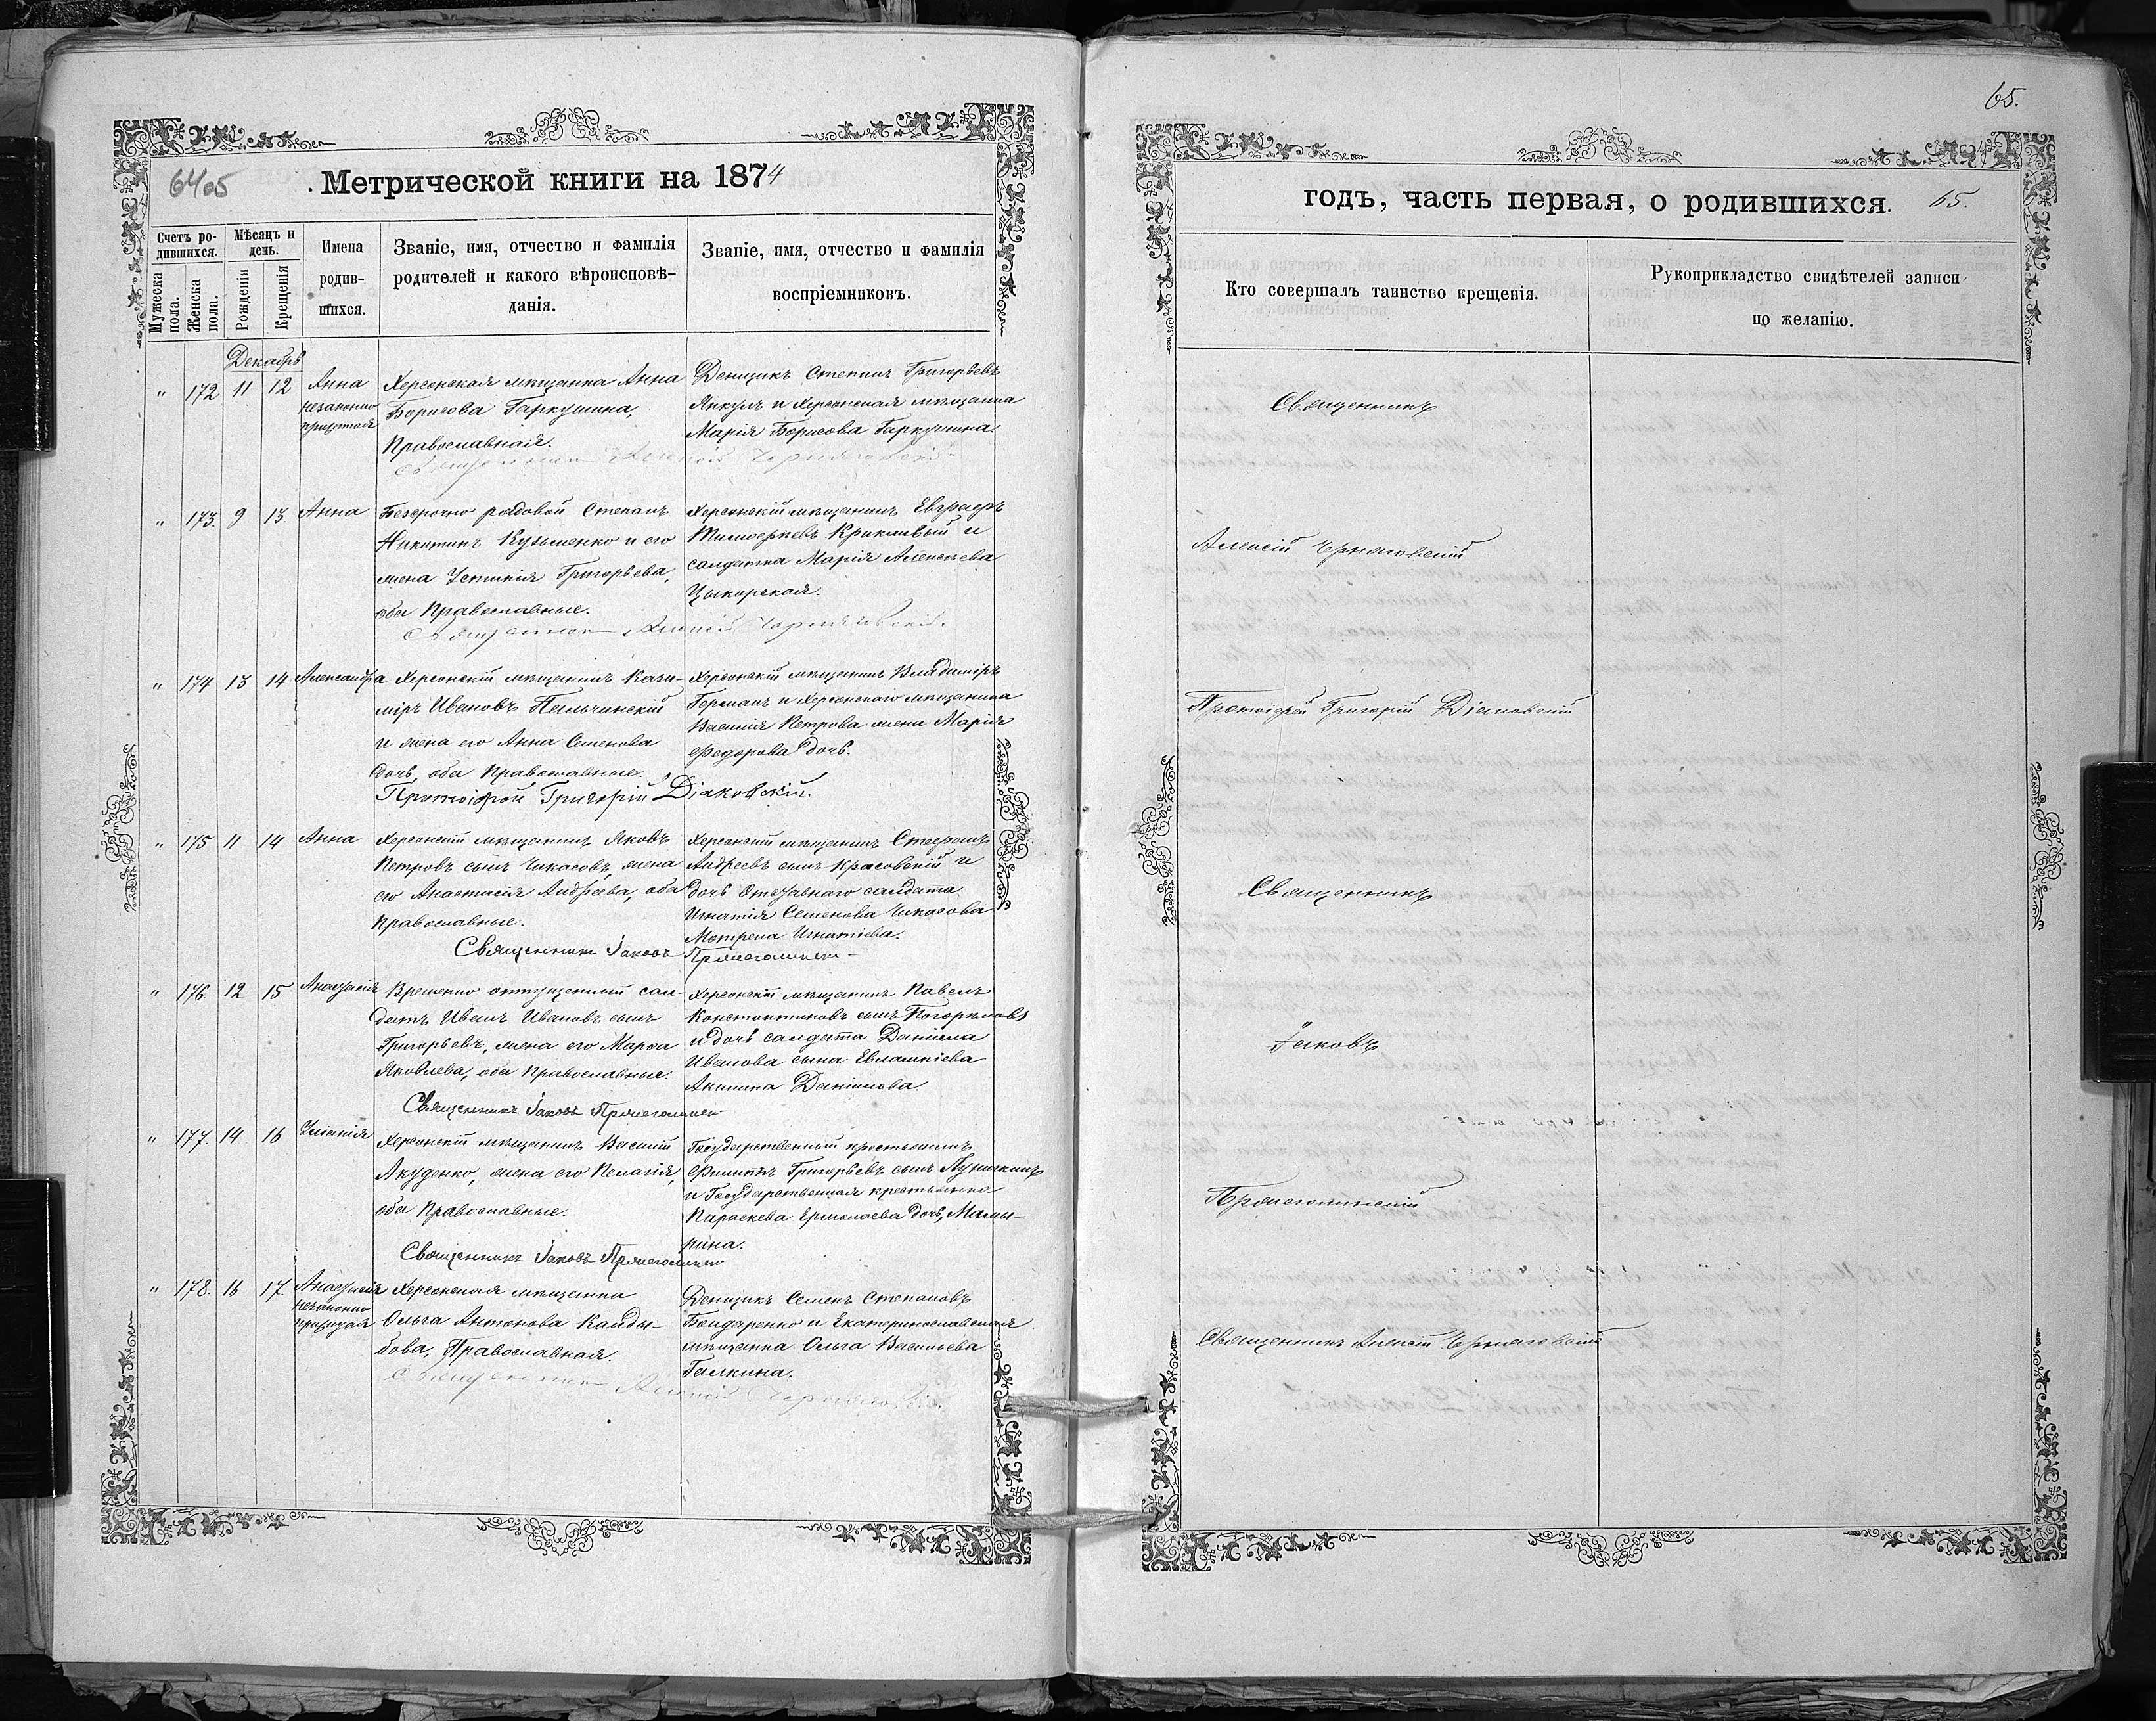 65.
64об
Метрической книги на 1874
годъ, часть первая, о родившихся.
65.
Счетъ ро-
дившихся.
Мужеска пола.
Женска пола.
Мѣсяцъ и
день.
Рожденія
Крещенія
Имена
родив-
шихся.
Званіе, имя, отчество и фамилія
родителей и какого вѣроисповѣ-
данія.
Званіе, имя, отчество и фамилія
воспріемниковъ.
Кто совершалъ таинство крещенія.
Рукоприкладство свидѣтелей записи
по желанію.
Декабрь
" 172 11 12
Анна
незаконно
прижитая
Херсонская мѣщанка Анна
Борисова Гаркушина,
Православная.
Священникъ Алексій Черняговскій
Денщикъ Степанъ Григорьевъ
Янкулъ и Херсонская мѣщанка
Марія Борисова Гаркушина.
Священникъ
" 173. 9 13. Анна
Безсрочно рядовой Степанъ
Никитинъ Кузьменко и его
жена Устинія Григорьева,
оба Православные.
Священникъ Алексій Черняговскій.
Херсонскій мѣщанинъ Евграфъ
Тимофѣевъ Крикливый и
солдатка Марія Алексѣева
Цыкорская.
Алексій Черняговскій
" 174 13 14 Александра
Херсонскій мѣщанинъ Кази-
міръ Ивановъ Пальчинскій
и жена его Анна Семенова
дочь, оба Православные.
Протоіерей Григорій Діаковскій.
Херсонскій мѣщанинъ Владиміръ
Германъ и Херсонскаго мѣщанина
Василія Петрова жена Марія
Федорова дочь.
Протоіерей Григорій Діаковскій
" 175 11 14 Анна
Херсонскій мѣщанинъ Яковъ
Петровъ сынъ Чикасовъ, жена
его Анастасія Андреева, оба
Православные.
Священникъ Іаковъ
Херсонскій мѣщанинъ Стефанъ
Андреевъ сынъ Красовскій и
дочь Отставнаго солдата
Игнатія Семенова Чикасова
Мотрена Игнатіева.
Священникъ
" 176. 12 15 Анастасія
Временно отпущенный сол-
датъ Иванъ Ивановъ сынъ
Григорьевъ, жена его Марѳа
Яковлева, оба Православные.
Священникъ Іаковъ
Херсонскій мѣщанинъ Павелъ
Константиновъ сынъ Погорѣловъ
и дочь солдата Даніила
Иванова сына Евлампіева
Акилина Даніилова.
Іаковъ
" 177. 14 16 Уліанія
Херсонскій мѣщанинъ Василій
Акуденко, жена его Пелагія,
оба Православные.
Священникъ Іаковъ
Государственный крестьянинъ
Филиппъ Григорьевъ сынъ
и Государственная крестьянка
Параскева Ермолаева дочь, Мамы-
кина.
" 178. 16 17.
Анастасія
незаконно
прижитая
Херсонская мѣщанка
Ольга Антонова Канды-
бова, Православная.
Священникъ Алексій Черняговскій.
Денщикъ Семенъ Степановъ
Бондаренко и Екатеринославская
мѣщанка Ольга Васильева
Галкина.
Священникъ Алексій Черняговскій